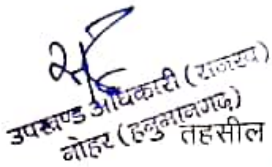 उपखण्ड अधिकारी (राजस्व)
नोहर (हनुमानगढ़) तहसील